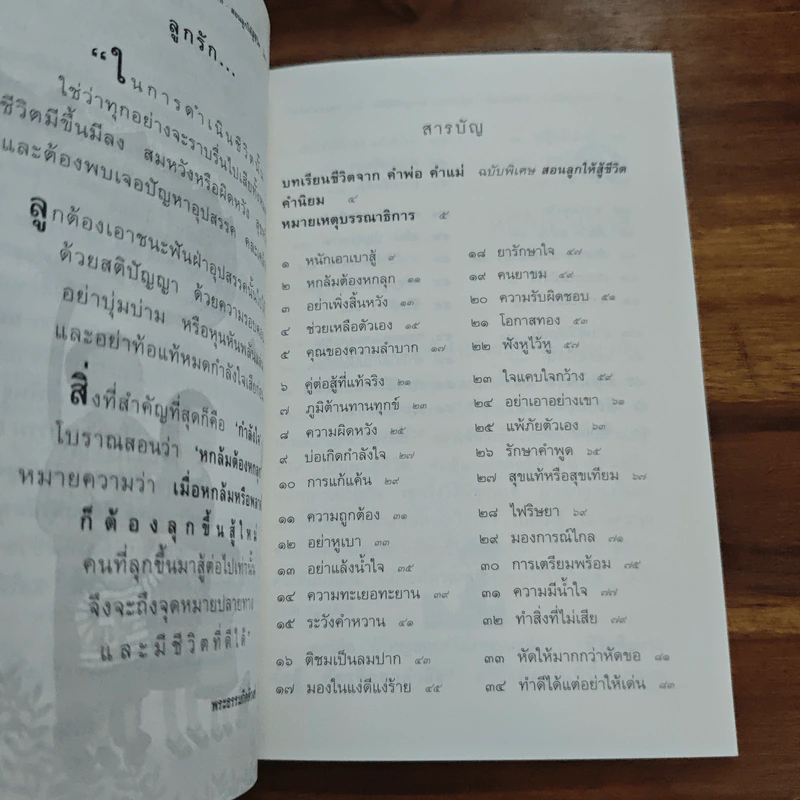 ลูกรัก...
“ในการดำเนินชีวิตนั้น
ใช่ว่าทุกอย่างจะราบรื่นไปเสีย
ชีวิตมีขึ้นมีลง สมหวังหรือผิดหวัง
และต้องพบเจอปัญหาอุปสรรค
ลูกต้องเอาชนะฟันฝ่าอุปสรรคนั้น
ด้วยสติปัญญา ด้วยความรอบคอบ
อย่าบุ่มบ่าม หรือหุนหันพลันแล่น
และอย่าท้อแท้หมดกำลังใจ
สิ่งที่สำคัญที่สุดก็คือ ‘กำลังใจ
โบราณสอนว่า ‘หกล้มต้องหกลุก
หมายความว่า เมื่อหกล้มหรือพลาด
ก็ต้องลุกขึ้นสู้ใหม่
คนที่ลุกขึ้นมาสู้ต่อไปเท่านั้น
จึงจะถึงจุดหมายปลายทาง
และมีชีวิตที่ดีได้”
สารบัญ
บทเรียนชีวิตจาก คำพ่อ คำแม่ ฉบับพิเศษ สอนลูกให้สู้ชีวิต
คำนิยม ๔
หมายเหตุบรรณาธิการ ๕
๑ หนักเอาเบาสู้ ๙
๒ หกล้มต้องหกลุก ๑๑
๓ อย่าเพิ่งสิ้นหวัง ๑๓
๔ ช่วยเหลือตัวเอง ๑๕
๕ คุณของความลำบาก ๑๗
๖ คู่ต่อสู้ที่แท้จริง ๒๑
๗ ภูมิต้านทานทุกข์ ๒๓
๘ ความผิดหวัง ๒๕
๙ บ่อเกิดกำลังใจ ๒๗
๑๐ การแก้แค้น ๒๙
๑๑ ความถูกต้อง ๓๑
๑๒ อย่าหูเบา ๓๓
๑๓ อย่าแล้งน้ำใจ ๓๕
๑๔ ความทะเยอทะยาน ๓๙
๑๕ ระวังคำหวาน ๔๑
๑๖ ติชมเป็นลมปาก ๔๓
๑๗ มองในแง่ดีแง่ร้าย ๔๕
๑๘ ยารักษาใจ ๔๗
๑๙ คนยาขม ๔๙
๒๐ ความรับผิดชอบ ๕๑
๒๑ โอกาสทอง ๕๓
๒๒ ฟังหูไว้หู ๕๗
๒๓ ใจแคบใจกว้าง ๕๙
๒๔ อย่าเอาอย่างเขา ๖๑
๒๕ แพ้ภัยตัวเอง ๖๓
๒๖ รักษาคำพูด ๖๕
๒๗ สุขแท้หรือสุขเทียม ๖๗
๒๘ ไฟริษยา ๖๙
๒๙ มองการณ์ไกล ๗๑
๓๐ การเตรียมพร้อม ๗๕
๓๑ ความมีน้ำใจ ๗๗
๓๒ ทำสิ่งที่ไม่เสีย ๗๙
๓๓ หัดให้มากกว่าหัดขอ ๘๑
๓๔ ทำดีได้แต่อย่าให้เด่น ๘๓